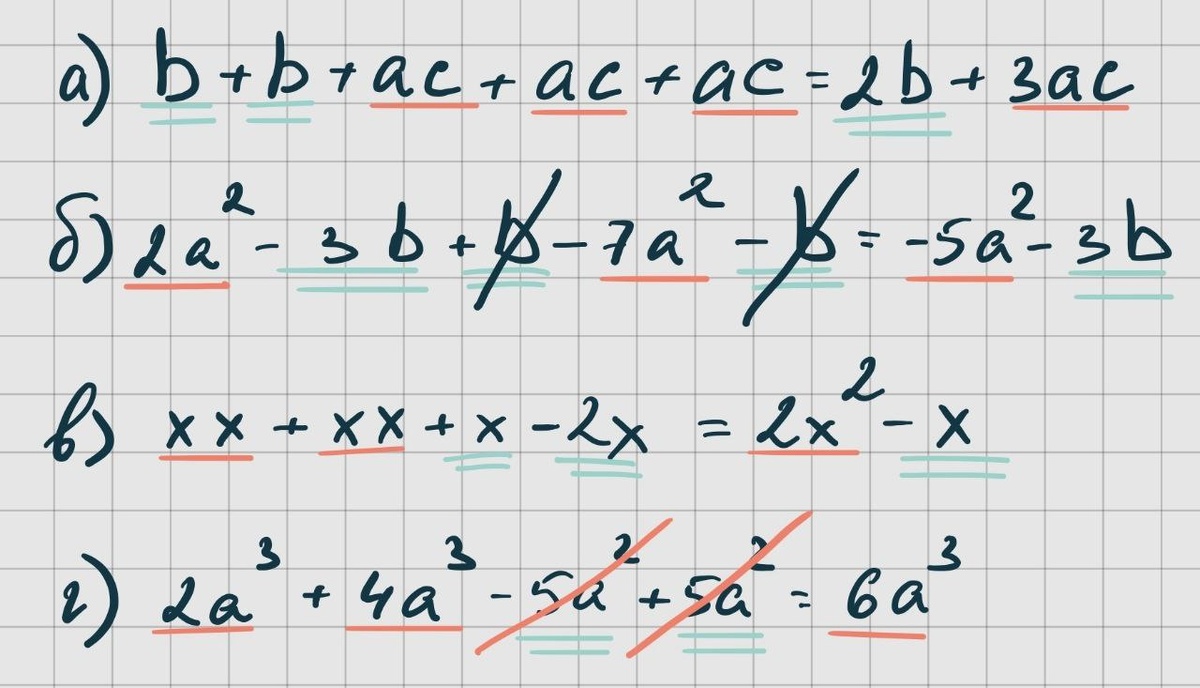 а) b + b + ac + ac + ac = 2b + 3ac
б) 2a² - 3b + b - 7a² - b = -5a² - 3b
в) xx + xx + x - 2x = 2x² - x
г) 2a³ + 4a³ - 5a² + 5a² = 6a³